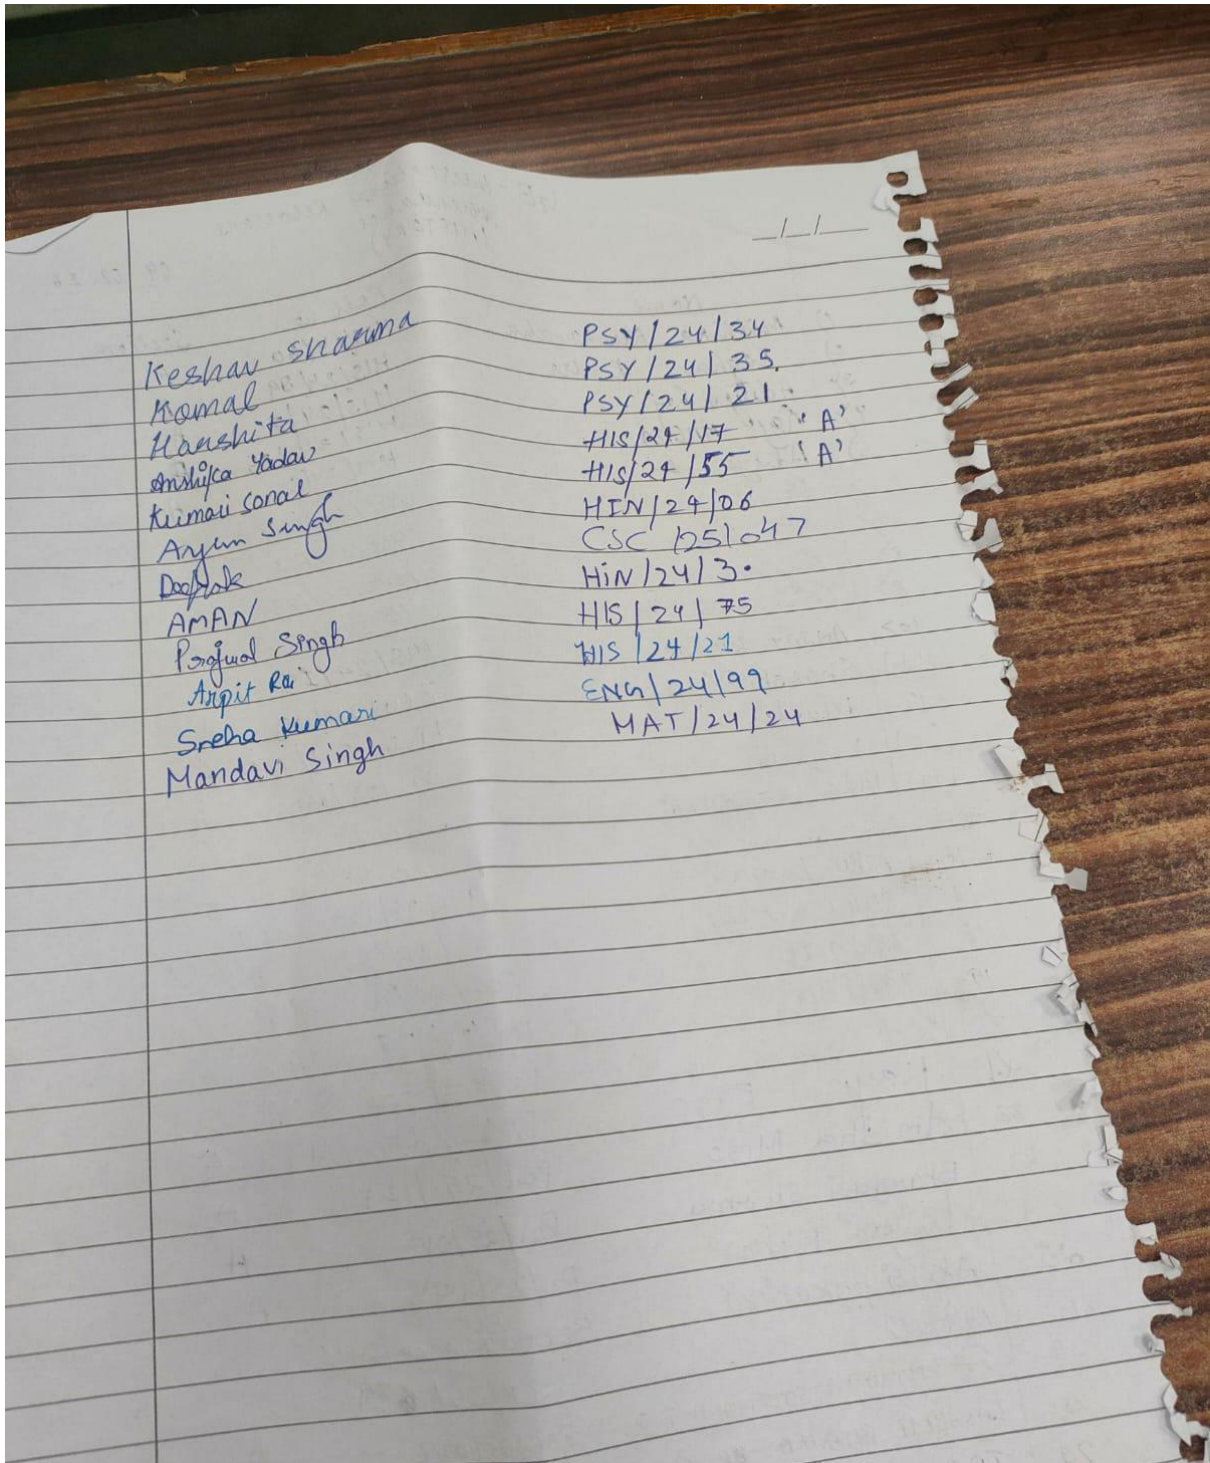 __/__/__
Keshav Sharma PSY/24/34
Komal PSY/24/35.
Harshita PSY/24/21
Anshika Yadav HIS/24/17 "A"
Kumari Sonal HIS/24/55 "A"
Aryan Singh HIN/24/06
Deepak CSC/25/047
AMAN HiN/24/3.
Prajwal Singh HIS/24/75
Arpit Rai HIS/24/21
Sneha Kumari ENG/24/99
Mandavi Singh MAT/24/24